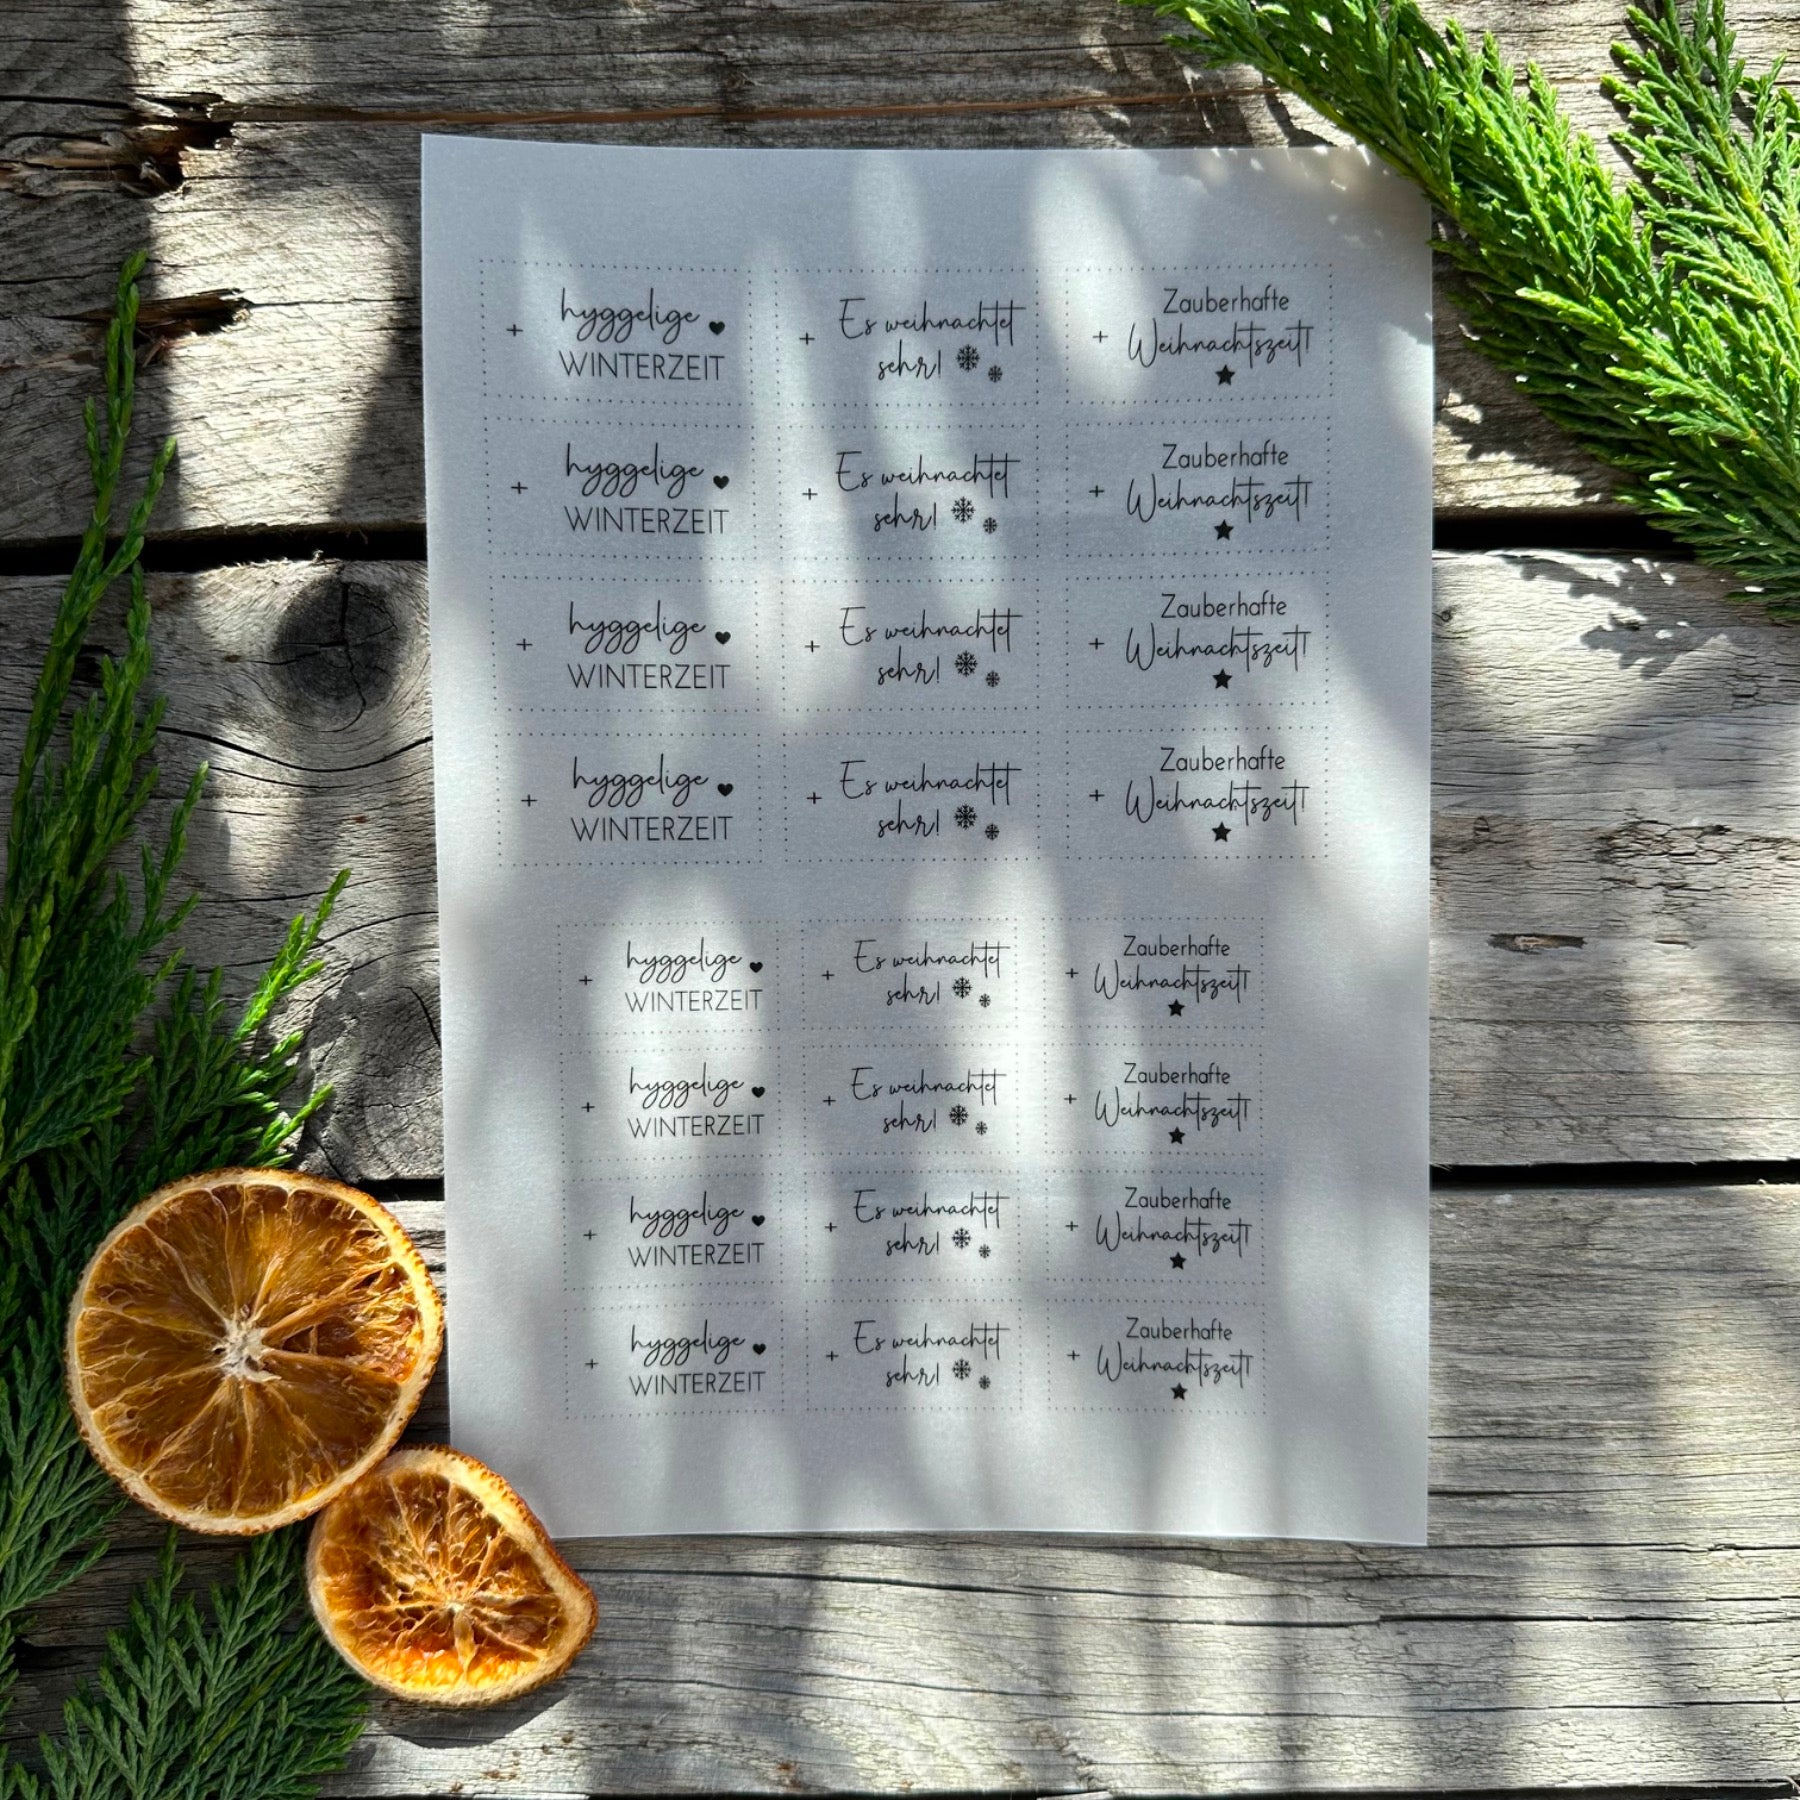 + hyggelige
WINTERZEIT
+ Es weihnachtet
sehr!
+ Zauberhafte
Weihnachtszeit!
+ hyggelige
WINTERZEIT
+ Es weihnachtet
sehr!
+ Zauberhafte
Weihnachtszeit!
+ hyggelige
WINTERZEIT
+ Es weihnachtet
sehr!
+ Zauberhafte
Weihnachtszeit!
+ hyggelige
WINTERZEIT
+ Es weihnachtet
sehr!
+ Zauberhafte
Weihnachtszeit!
+ hyggelige
WINTERZEIT
+ Es weihnachtet
sehr!
+ Zauberhafte
Weihnachtszeit!
+ hyggelige
WINTERZEIT
+ Es weihnachtet
sehr!
+ Zauberhafte
Weihnachtszeit!
+ hyggelige
WINTERZEIT
+ Es weihnachtet
sehr!
+ Zauberhafte
Weihnachtszeit!
+ hyggelige
WINTERZEIT
+ Es weihnachtet
sehr!
+ Zauberhafte
Weihnachtszeit!